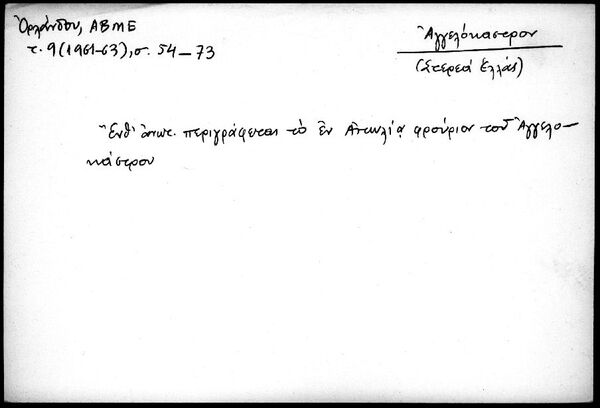 Ὀρλάνδου, ΑΒΜΕ
τ. 9 (1961-63), σ. 54 — 73
Ἀγγελόκαστρον
(Στερεὰ Ἑλλάς)
Ἔνθ' ἀνωτ. περιγράφεται τὸ ἐν Αἰτωλίᾳ φρούριον τοῦ Ἀγγελο-
κάστρου